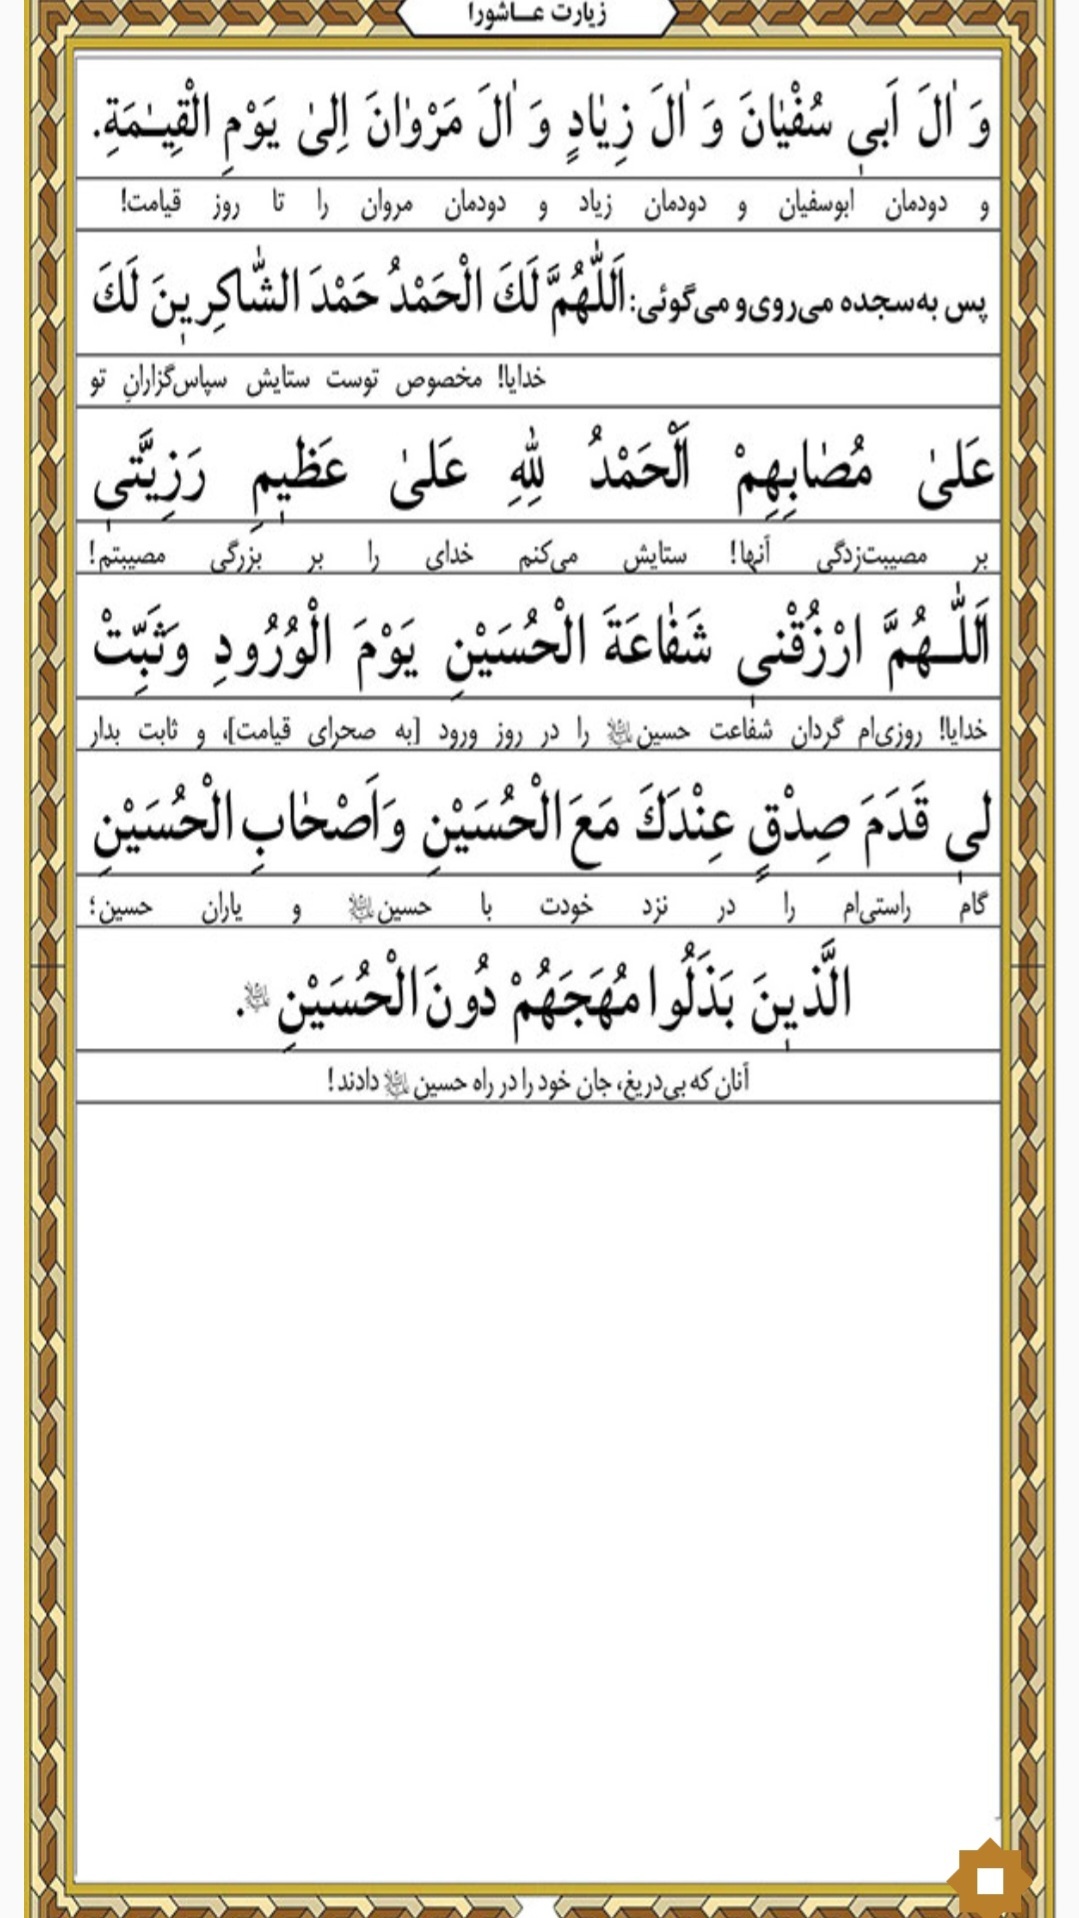 زیارت عـاشورا
وَ اٰلَ اَبی سُفْیٰانَ وَ اٰلَ زِیٰادٍ وَ اٰلَ مَرْوٰانَ اِلیٰ یَوْمِ الْقِیـٰمَةِ.
و دودمان ابوسفیان و دودمان زیاد و دودمان مروان را تا روز قیامت!
پس به‌سجده می‌روی‌و می‌گوئی: اَللّٰهُمَّ لَكَ الْحَمْدُ حَمْدَ الشّٰاکِرِینَ لَكَ
خدایا! مخصوص توست ستایش سپاس‌گزارانِ تو
عَلیٰ مُصٰابِهِمْ اَلْحَمْدُ لِلّٰهِ عَلیٰ عَظیمِ رَزِیَّتی
بر مصیبت‌زدگی آنها! ستایش می‌کنم خدای را بر بزرگی مصیبتم!
اَللّٰـهُمَّ ارْزُقْنی شَفٰاعَةَ الْحُسَیْنِ یَوْمَ الْوُرُودِ وَثَبِّتْ
خدایا! روزی‌ام گردان شفاعت حسین علیه‌السلام را در روز ورود [به صحرای قیامت]، و ثابت بدار
لی قَدَمَ صِدْقٍ عِنْدَكَ مَعَ الْحُسَیْنِ وَاَصْحٰابِ الْحُسَیْنِ
گام راستی‌ام را در نزد خودت با حسین علیه‌السلام و یاران حسین؛
الَّذینَ بَذَلُوا مُهَجَهُمْ دُونَ الْحُسَیْنِ علیه‌السلام.
آنان که بی‌دریغ، جان خود را در راه حسین علیه‌السلام دادند!